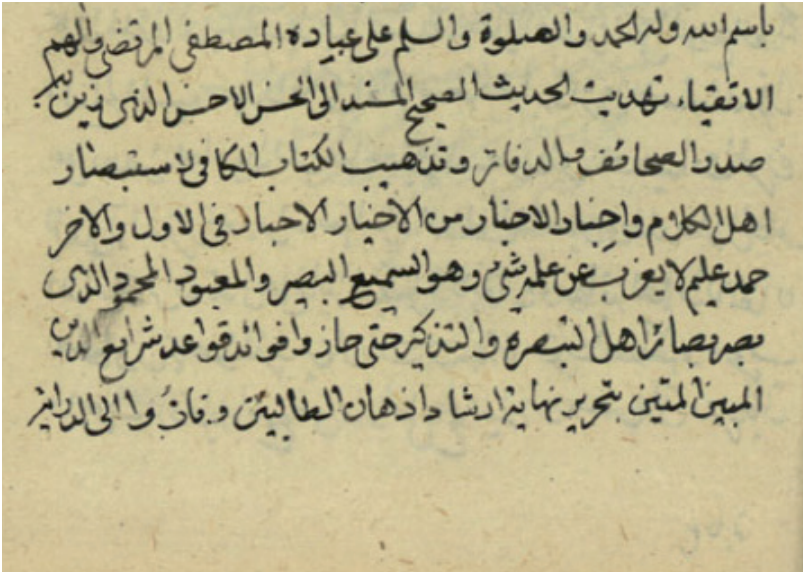 باسم الله وله الحمد والصلوة والسلم على عباده المصطفى المرتضى والهم
الاتقياء تهذيب الحديث الصحيح المسند الى الحسن الاحسن الذى زين به
صدر الصحائف والدفاتر وتذهيب الكتاب الكافى لاستبصار
اهل الكلام واخبار الاخبار من الاخيار الاحبار فى الاول والاخر
حمد عليم لا يعزب عن علمه شئ وهو السميع البصير والمعبود المحمود الذى
بصر بصائر اهل التبصرة والتذكير حتى حازوا فوائد قواعد شرايع الدين
المبين المتين بتحرير نهاية ارشاد اذهان الطالبين وفازوا الى الدراية